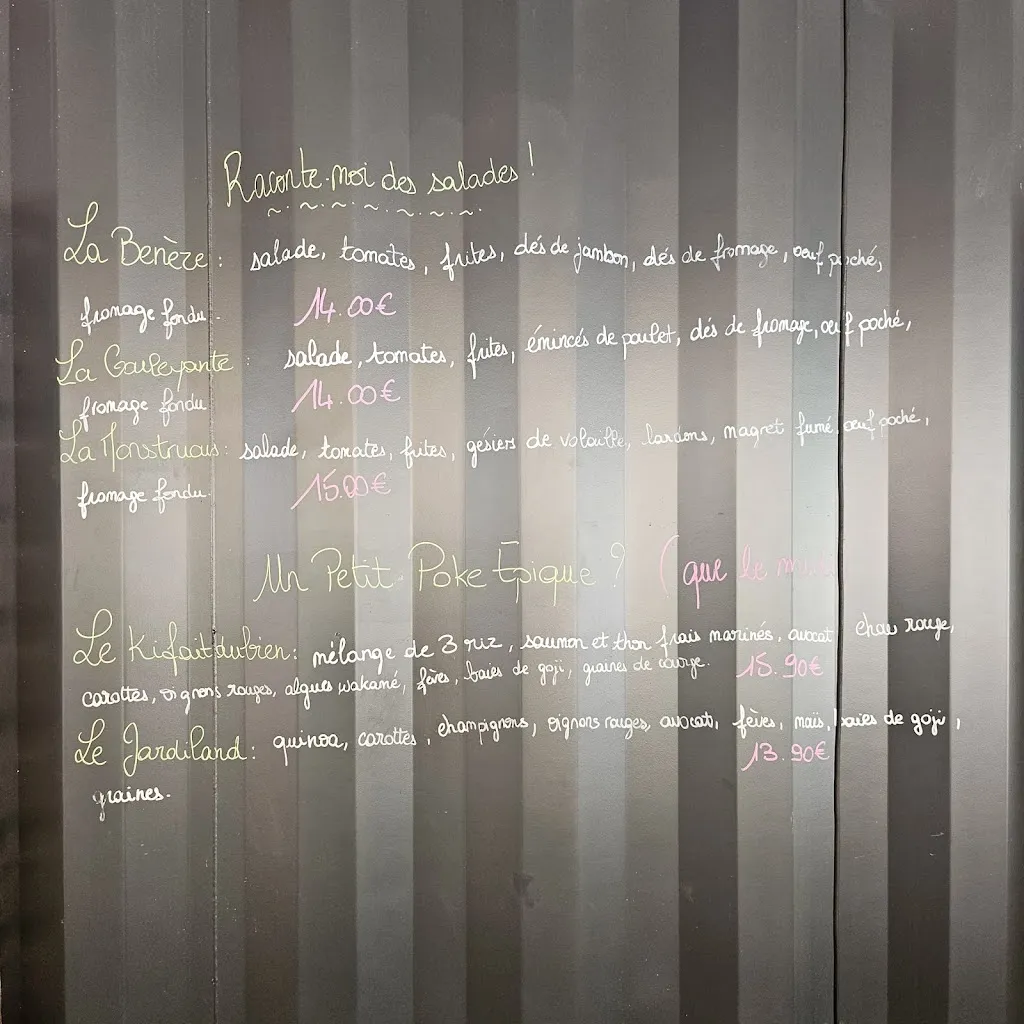 Raconte-moi des salades !
La Benèze : salade, tomates, frites, dés de jambon, dés de fromage, oeuf poché,
fromage fondu. 14.00€
La Gouleyante : salade, tomates, frites, émincés de poulet, dés de fromage, oeuf poché,
fromage fondu 14.00€
La Monstruous : salade, tomates, frites, gésiers de volaille, lardons, magret fumé, oeuf poché,
fromage fondu. 15.00€
Un Petit Poke Épique ? (que le
Le Kifaitdubien : mélange de 3 riz, saumon et thon frais marinés, avocat, chou rouge,
carottes, oignons rouges, algues wakamé, fèves, baies de goji, graines de courge. 15.90€
Le Jardiland : quinoa, carottes, champignons, oignons rouges, avocat, fèves, maïs, baies de goji,
graines. 13.90€